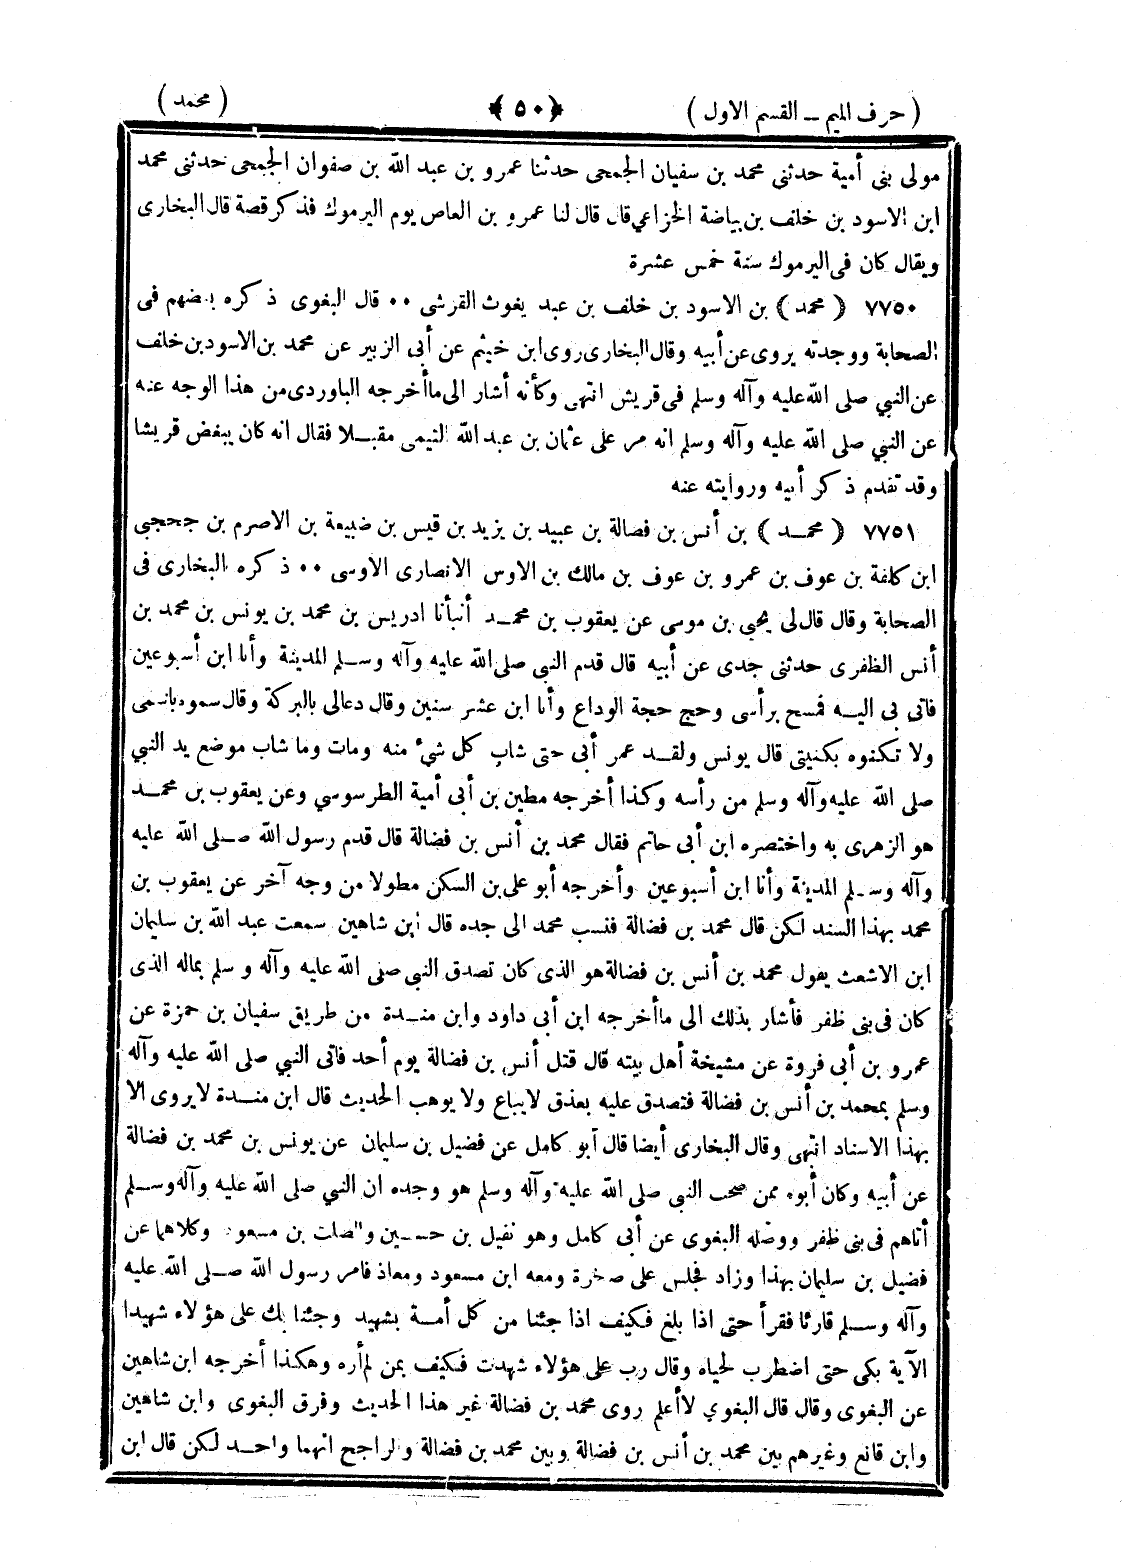 ( حرف الميم ــ القسم الاول )
﴿ ٥٠ ﴾
( محمد )
مولى بنى أمية حدثنى محمد بن سفيان الجمحى حدثنا عمرو بن عبد الله بن صفوان الجمحى حدثنى محمد
ابن الاسود بن خلف بن بياضة الخزاعي قال قال لنا عمرو بن العاص يوم اليرموك فذكر قصة قال البخارى
ويقال كان فى اليرموك سنة خمس عشرة
٧٧٥٠ ﴿ محمد ﴾ بن الاسود بن خلف بن عبد يغوث القرشى ٠٠ قال البغوى ذكره بعضهم فى
الصحابة ووجدته يروى عن أبيه وقال البخارى روى ابن خيثم عن أبى الزبير عن محمد بن الاسود بن خلف
عن النبي صلى الله عليه وآله وسلم فى قريش انتهى وكأنه أشار الى ما أخرجه الباوردى من هذا الوجه عنه
عن النبي صلى الله عليه وآله وسلم انه مر على عثمان بن عبد الله التيمى مقبــلا فقال انه كان يبغض قريشا
وقد تقدم ذكر أبيه وروايته عنه
٧٧٥١ ﴿ محمــد ﴾ بن أنس بن فضالة بن عبيد بن يزيد بن قيس بن ضبيعة بن الاصرم بن جحجبى
ابن كلفة بن عوف بن عمرو بن عوف بن مالك بن الاوس الانصارى الاوسى ٠٠ ذكره البخارى فى
الصحابة وقال قال لى يحيى بن موسى عن يعقوب بن محمــد أنبأنا ادريس بن محمد بن يونس بن محمد بن
أنس الظفرى حدثنى جدى عن أبيه قال قدم النبى صلى الله عليه وآله وســلم المدينة وأنا ابن أسبوعين
فاتى بى اليــه فمسح برأسى وحج حجة الوداع وأنا ابن عشر سنين وقال دعا لى بالبركة وقال سموه باسمى
ولا تكنوه بكنيتى قال يونس ولقــد عمر أبى حتى شاب كل شئ منه ومات وما شاب موضع يد النبي
صلى الله عليه وآله وسلم من رأسه وكذا أخرجه مطين بن أبى أمية الطرسوسي وعن يعقوب بن محمــد
هو الزهرى به واختصره ابن أبى حاتم فقال محمد بن أنس بن فضالة قال قدم رسول الله صــلى الله عليه
وآله وســلم المدينة وأنا ابن أسبوعين وأخرجه أبو على بن السكن مطولا من وجه آخر عن يعقوب بن
محمد بهذا السند لكن قال محمد بن فضالة فنسب محمد الى جده قال ابن شاهين سمعت عبد الله بن سليمان
ابن الاشعث يقول محمد بن أنس بن فضالة هو الذى كان تصدق النبى صلى الله عليه وآله وسلم بماله الذى
كان فى بنى ظفر فأشار بذلك الى ما أخرجه ابن أبى داود وابن منــدة من طريق سفيان بن حمزة عن
عمرو بن أبى فروة عن مشيخة أهل بيته قال قتل أنس بن فضالة يوم أحد فاتى النبي صلى الله عليه وآله
وسلم بمحمد بن أنس بن فضالة فتصدق عليه بعذق لايباع ولا يوهب الحديث قال ابن منــدة لا يروى الا
بهذا الاسناد انتهى وقال البخارى أيضا قال أبو كامل عن فضيل بن سليمان عن يونس بن محمد بن فضالة
عن أبيه وكان أبوه ممن صحب النبى صلى الله عليه وآله وسلم هو وجده ان النبي صلى الله عليه وآله وســلم
أتاهم فى بنى ظفر ووصله البغوى عن أبى كامل وهو نفيل بن حســين والصلت بن مسعود وكلاهما عن
فضيل بن سليمان بهذا وزاد فجلس على صخرة ومعه ابن مسعود ومعاذ فامر رسول الله صــلى الله عليه
وآله وســلم قارئا فقرأ حتى اذا بلغ فكيف اذا جئنا من كل أمــة بشهيد وجئنا بك على هؤلاء شهيدا
الآية بكى حتى اضطرب لحياه وقال رب على هؤلاء شهدت فكيف بمن لم أره وهكذا أخرجه ابن شاهين
عن البغوى وقال قال البغوي لا أعلم روى محمد بن فضالة غير هذا الحديث وفرق البغوى وابن شاهين
وابن قانع وغيرهم بين محمد بن أنس بن فضالة وبين محمد بن فضالة والراجح انهما واحــد لكن قال ابن